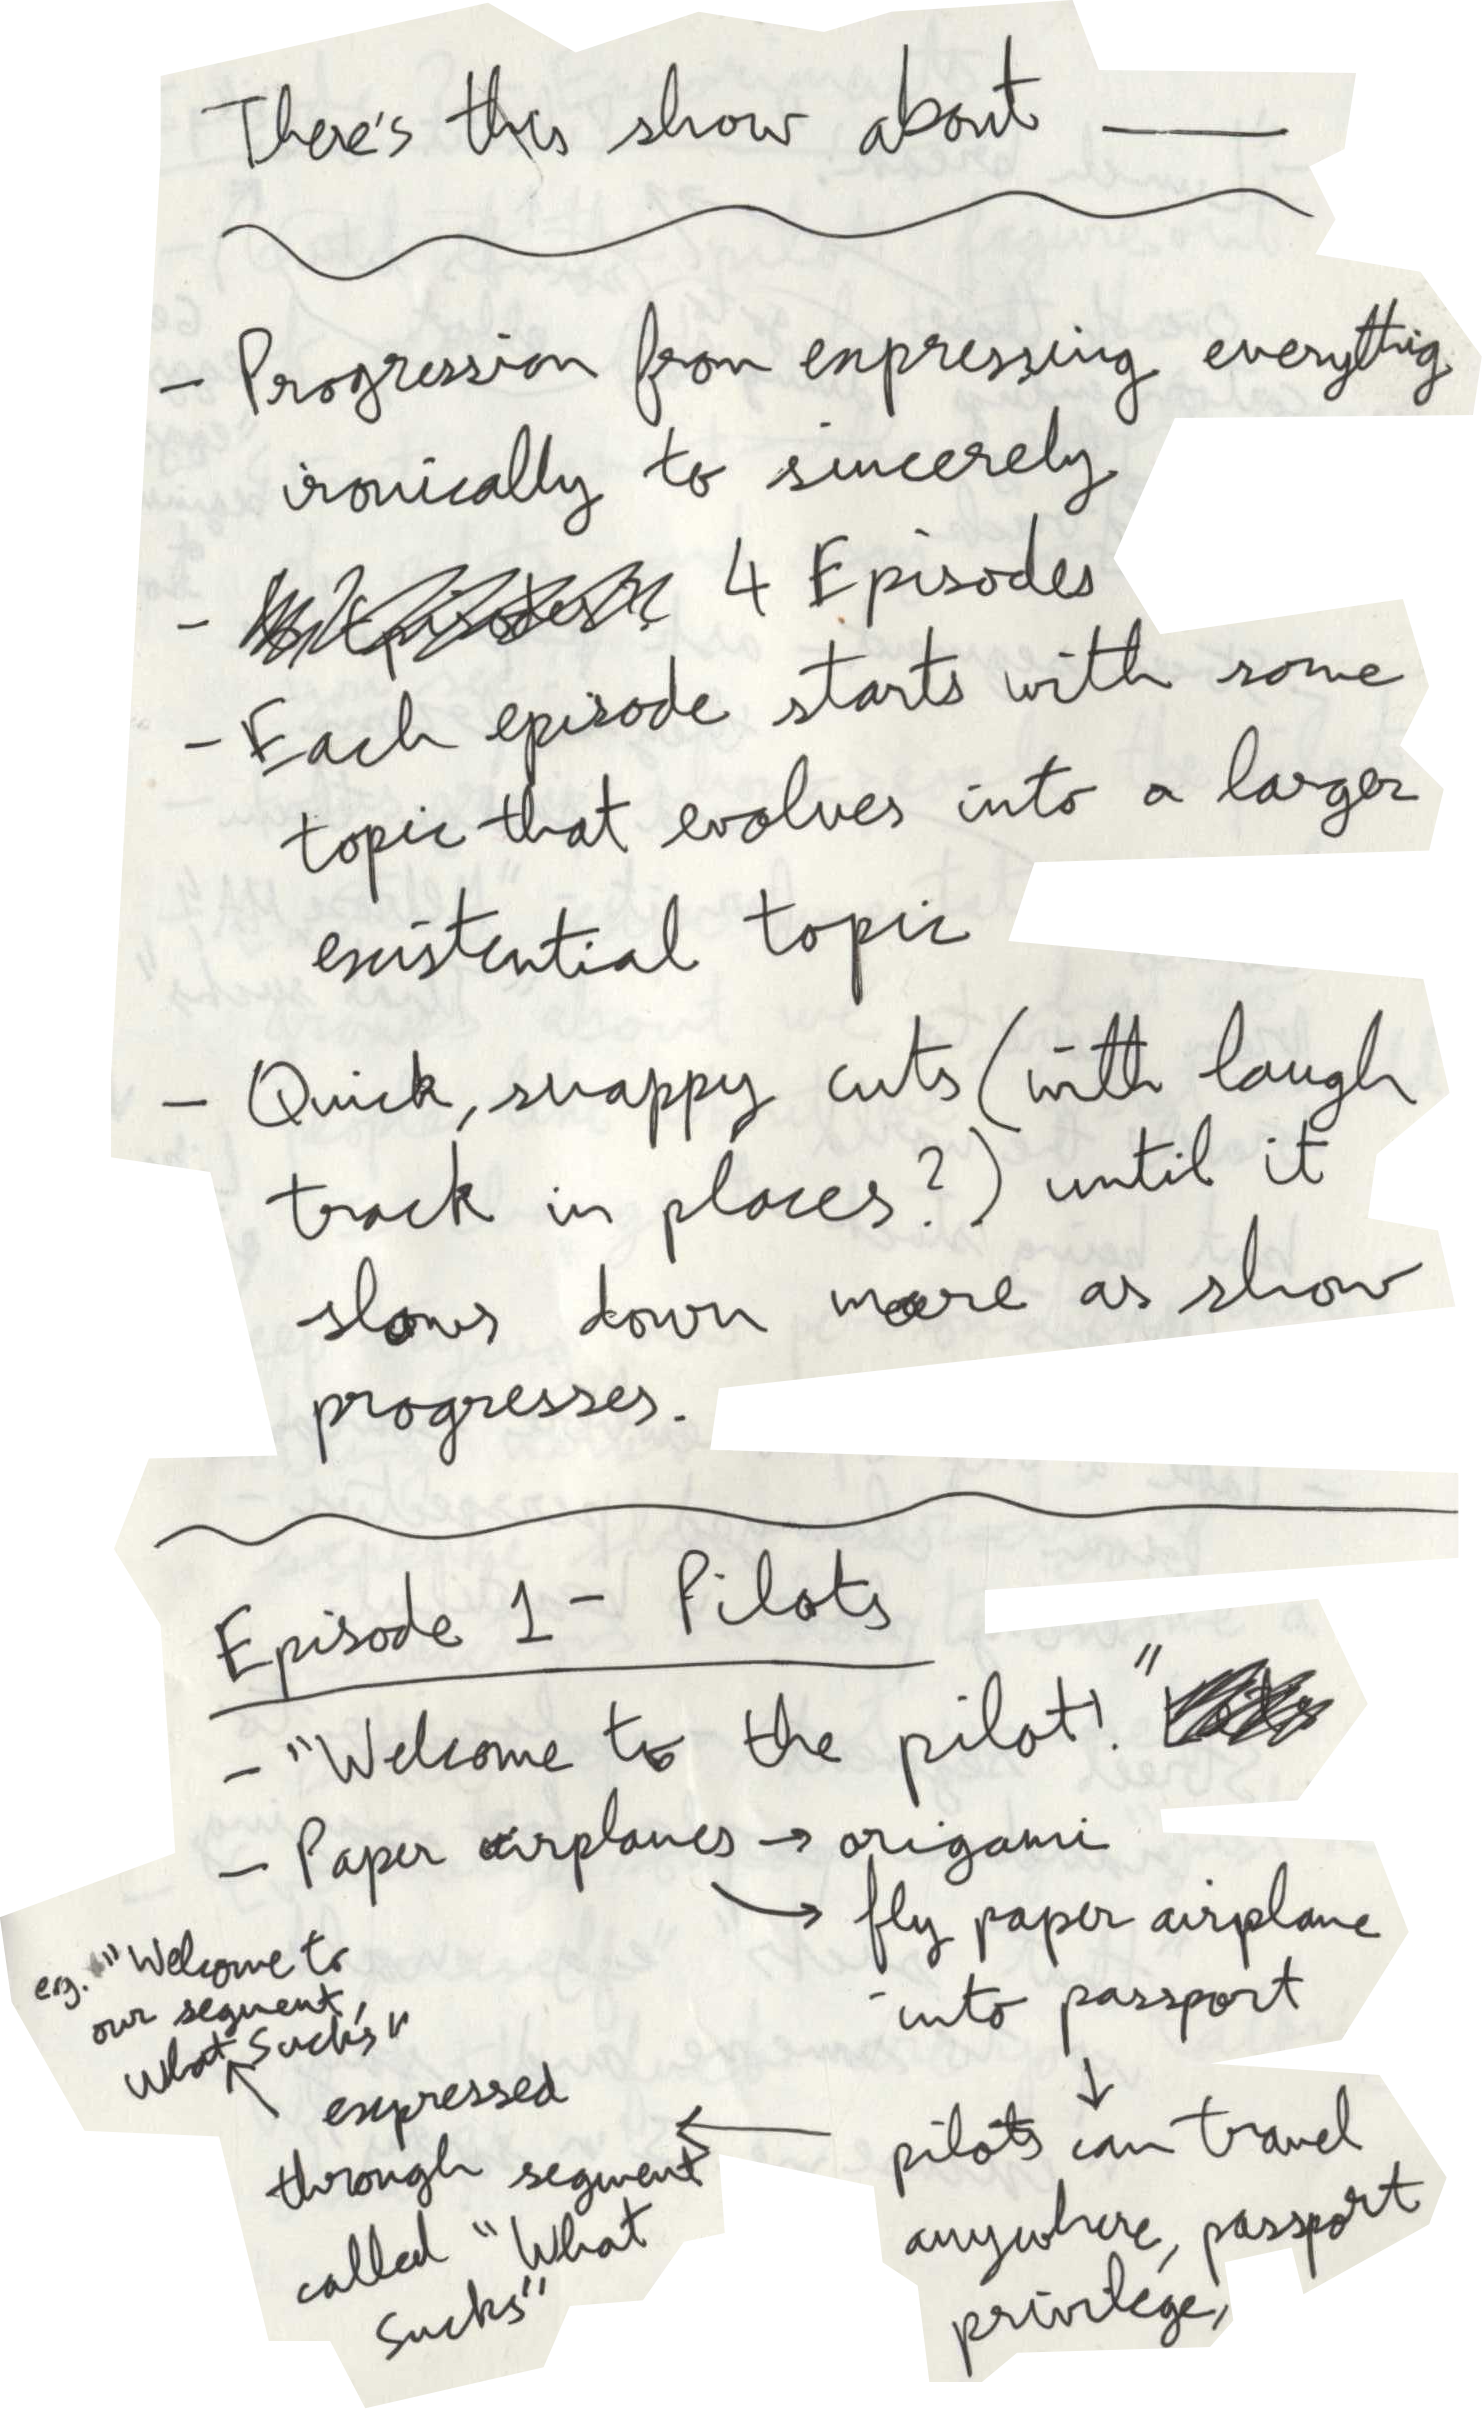 There's this show about ___
- Progression from expressing everythig
ironically to sincerely
- 4 Episodes
- Each episode starts with some
topic that evolves into a larger
existential topic
- Quick, snappy cuts (with laugh
track in places?) until it
slows down more as show
progresses.
Episode 1 - Pilots
- "Welcome to the pilot!"
- Paper airplanes → origami
→ fly paper airplane
into passport
↓
pilots can travel
anywhere, passport
privilege,
←
expressed
through segment
called "What
Sucks"
↑
e.g. "Welcome to
our segment,
What Sucks"